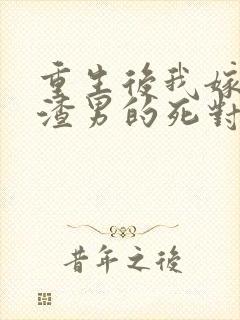 重生後我嫁
渣男的死對
昔年之後